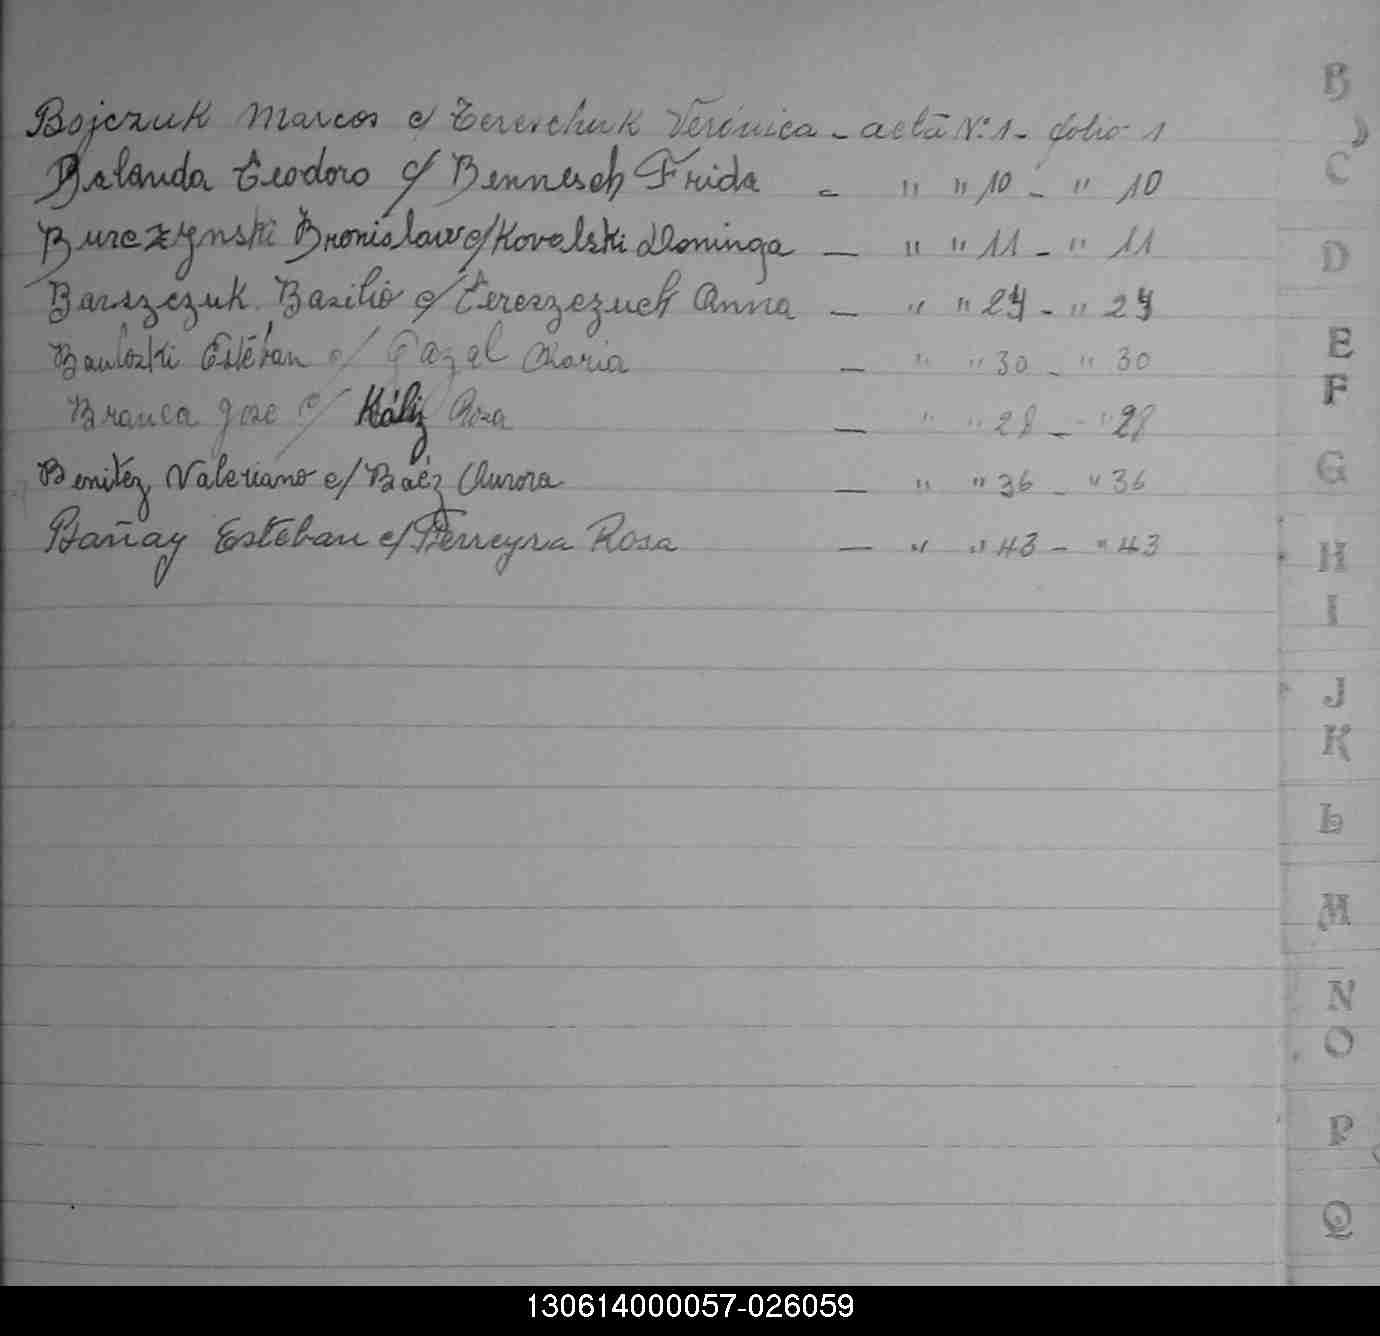 Bojczuk Marcos c/ Tereschuk Verónica - acta Nº 1 - folio 1
Balanda Teodoro c/ Bennesch Frida - " " 10 - " 10
Burczynski Bronislaw c/ Kovalski Dominga - " " 11 - " 11
Barszczuk Basilio c/ Tereszczuch Anna - " " 24 - " 24
Esteban c/ Maria - " " 30 - " 30
Branca Jose c/ Káliz Rosa - " " 28 - " 28
Benitez Valeriano c/ Baéz Aurora - " " 36 - " 36
Bañay Esteban c/ Ferreyra Rosa - " " 43 - " 43
B
C
D
E
F
G
H
I
J
K
L
M
N
O
P
Q
130614000057-026059